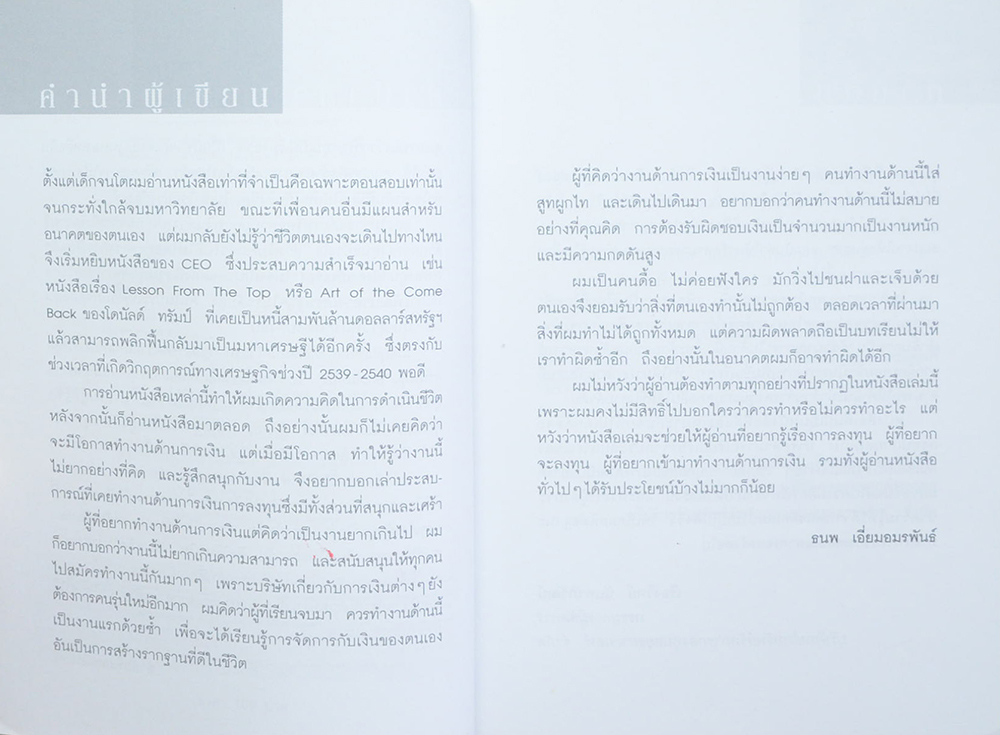 คำนำผู้เขียน
ตั้งแต่เด็กจนโตผมอ่านหนังสือเท่าที่จำเป็นคือเฉพาะตอนสอบเท่านั้น
จนกระทั่งใกล้จบมหาวิทยาลัย ขณะที่เพื่อนคนอื่นมีแผนสำหรับ
อนาคตของตนเอง แต่ผมกลับยังไม่รู้ว่าชีวิตตนเองจะเดินไปทางไหน
จึงเริ่มหยิบหนังสือของ CEO ซึ่งประสบความสำเร็จมาอ่าน เช่น
หนังสือเรื่อง Lesson From The Top หรือ Art of the Come
Back ของโดนัลด์ ทรัมป์ ที่เคยเป็นหนี้สามพันล้านดอลลาร์สหรัฐฯ
แล้วสามารถพลิกฟื้นกลับมาเป็นมหาเศรษฐีได้อีกครั้ง ซึ่งตรงกับ
ช่วงเวลาที่เกิดวิกฤตการณ์ทางเศรษฐกิจช่วงปี 2539-2540 พอดี
การอ่านหนังสือเหล่านี้ทำให้ผมเกิดความคิดในการดำเนินชีวิต
หลังจากนั้นก็อ่านหนังสือมาตลอด ถึงอย่างนั้นผมก็ไม่เคยคิดว่า
จะมีโอกาสทำงานด้านการเงิน แต่เมื่อมีโอกาส ทำให้รู้ว่างานนี้
ไม่ยากอย่างที่คิด และรู้สึกสนุกกับงาน จึงอยากบอกเล่าประสบ-
การณ์ที่เคยทำงานด้านการเงินการลงทุนซึ่งมีทั้งส่วนที่สนุกและเศร้า
ผู้ที่อยากทำงานด้านการเงินแต่คิดว่าเป็นงานยากเกินไป ผม
ก็อยากบอกว่างานนี้ไม่ยากเกินความสามารถ และสนับสนุนให้ทุกคน
ไปสมัครทำงานนี้กันมากๆ เพราะบริษัทเกี่ยวกับการเงินต่างๆ ยัง
ต้องการคนรุ่นใหม่อีกมาก ผมคิดว่าผู้ที่เรียนจบมา ควรทำงานด้านนี้
เป็นงานแรกด้วยซ้ำ เพื่อจะได้เรียนรู้การจัดการกับเงินของตนเอง
อันเป็นการสร้างรากฐานที่ดีในชีวิต
ผู้ที่คิดว่างานด้านการเงินเป็นงานง่ายๆ คนทำงานด้านนี้ใส่
สูทผูกไท และเดินไปเดินมา อยากบอกว่าคนทำงานด้านนี้ไม่สบาย
อย่างที่คุณคิด การต้องรับผิดชอบเงินเป็นจำนวนมากเป็นงานหนัก
และมีความกดดันสูง
ผมเป็นคนดื้อ ไม่ค่อยฟังใคร มักวิ่งไปชนฝาและเจ็บด้วย
ตนเองจึงยอมรับว่าสิ่งที่ตนเองทำนั้นไม่ถูกต้อง ตลอดเวลาที่ผ่านมา
สิ่งที่ผมทำไม่ได้ถูกทั้งหมด แต่ความผิดพลาดถือเป็นบทเรียนไม่ให้
เราทำผิดซ้ำอีก ถึงอย่างนั้นในอนาคตผมก็อาจทำผิดได้อีก
ผมไม่หวังว่าผู้อ่านต้องทำตามทุกอย่างที่ปรากฏในหนังสือเล่มนี้
เพราะผมคงไม่มีสิทธิ์ไปบอกใครว่าควรทำหรือไม่ควรทำอะไร แต่
หวังว่าหนังสือเล่มจะช่วยให้ผู้อ่านที่อยากรู้เรื่องการลงทุน ผู้ที่อยาก
จะลงทุน ผู้ที่อยากเข้ามาทำงานด้านการเงิน รวมทั้งผู้อ่านหนังสือ
ทั่วไปๆ ได้รับประโยชน์บ้างไม่มากก็น้อย
ธนพ เอี่ยมอมรพันธ์